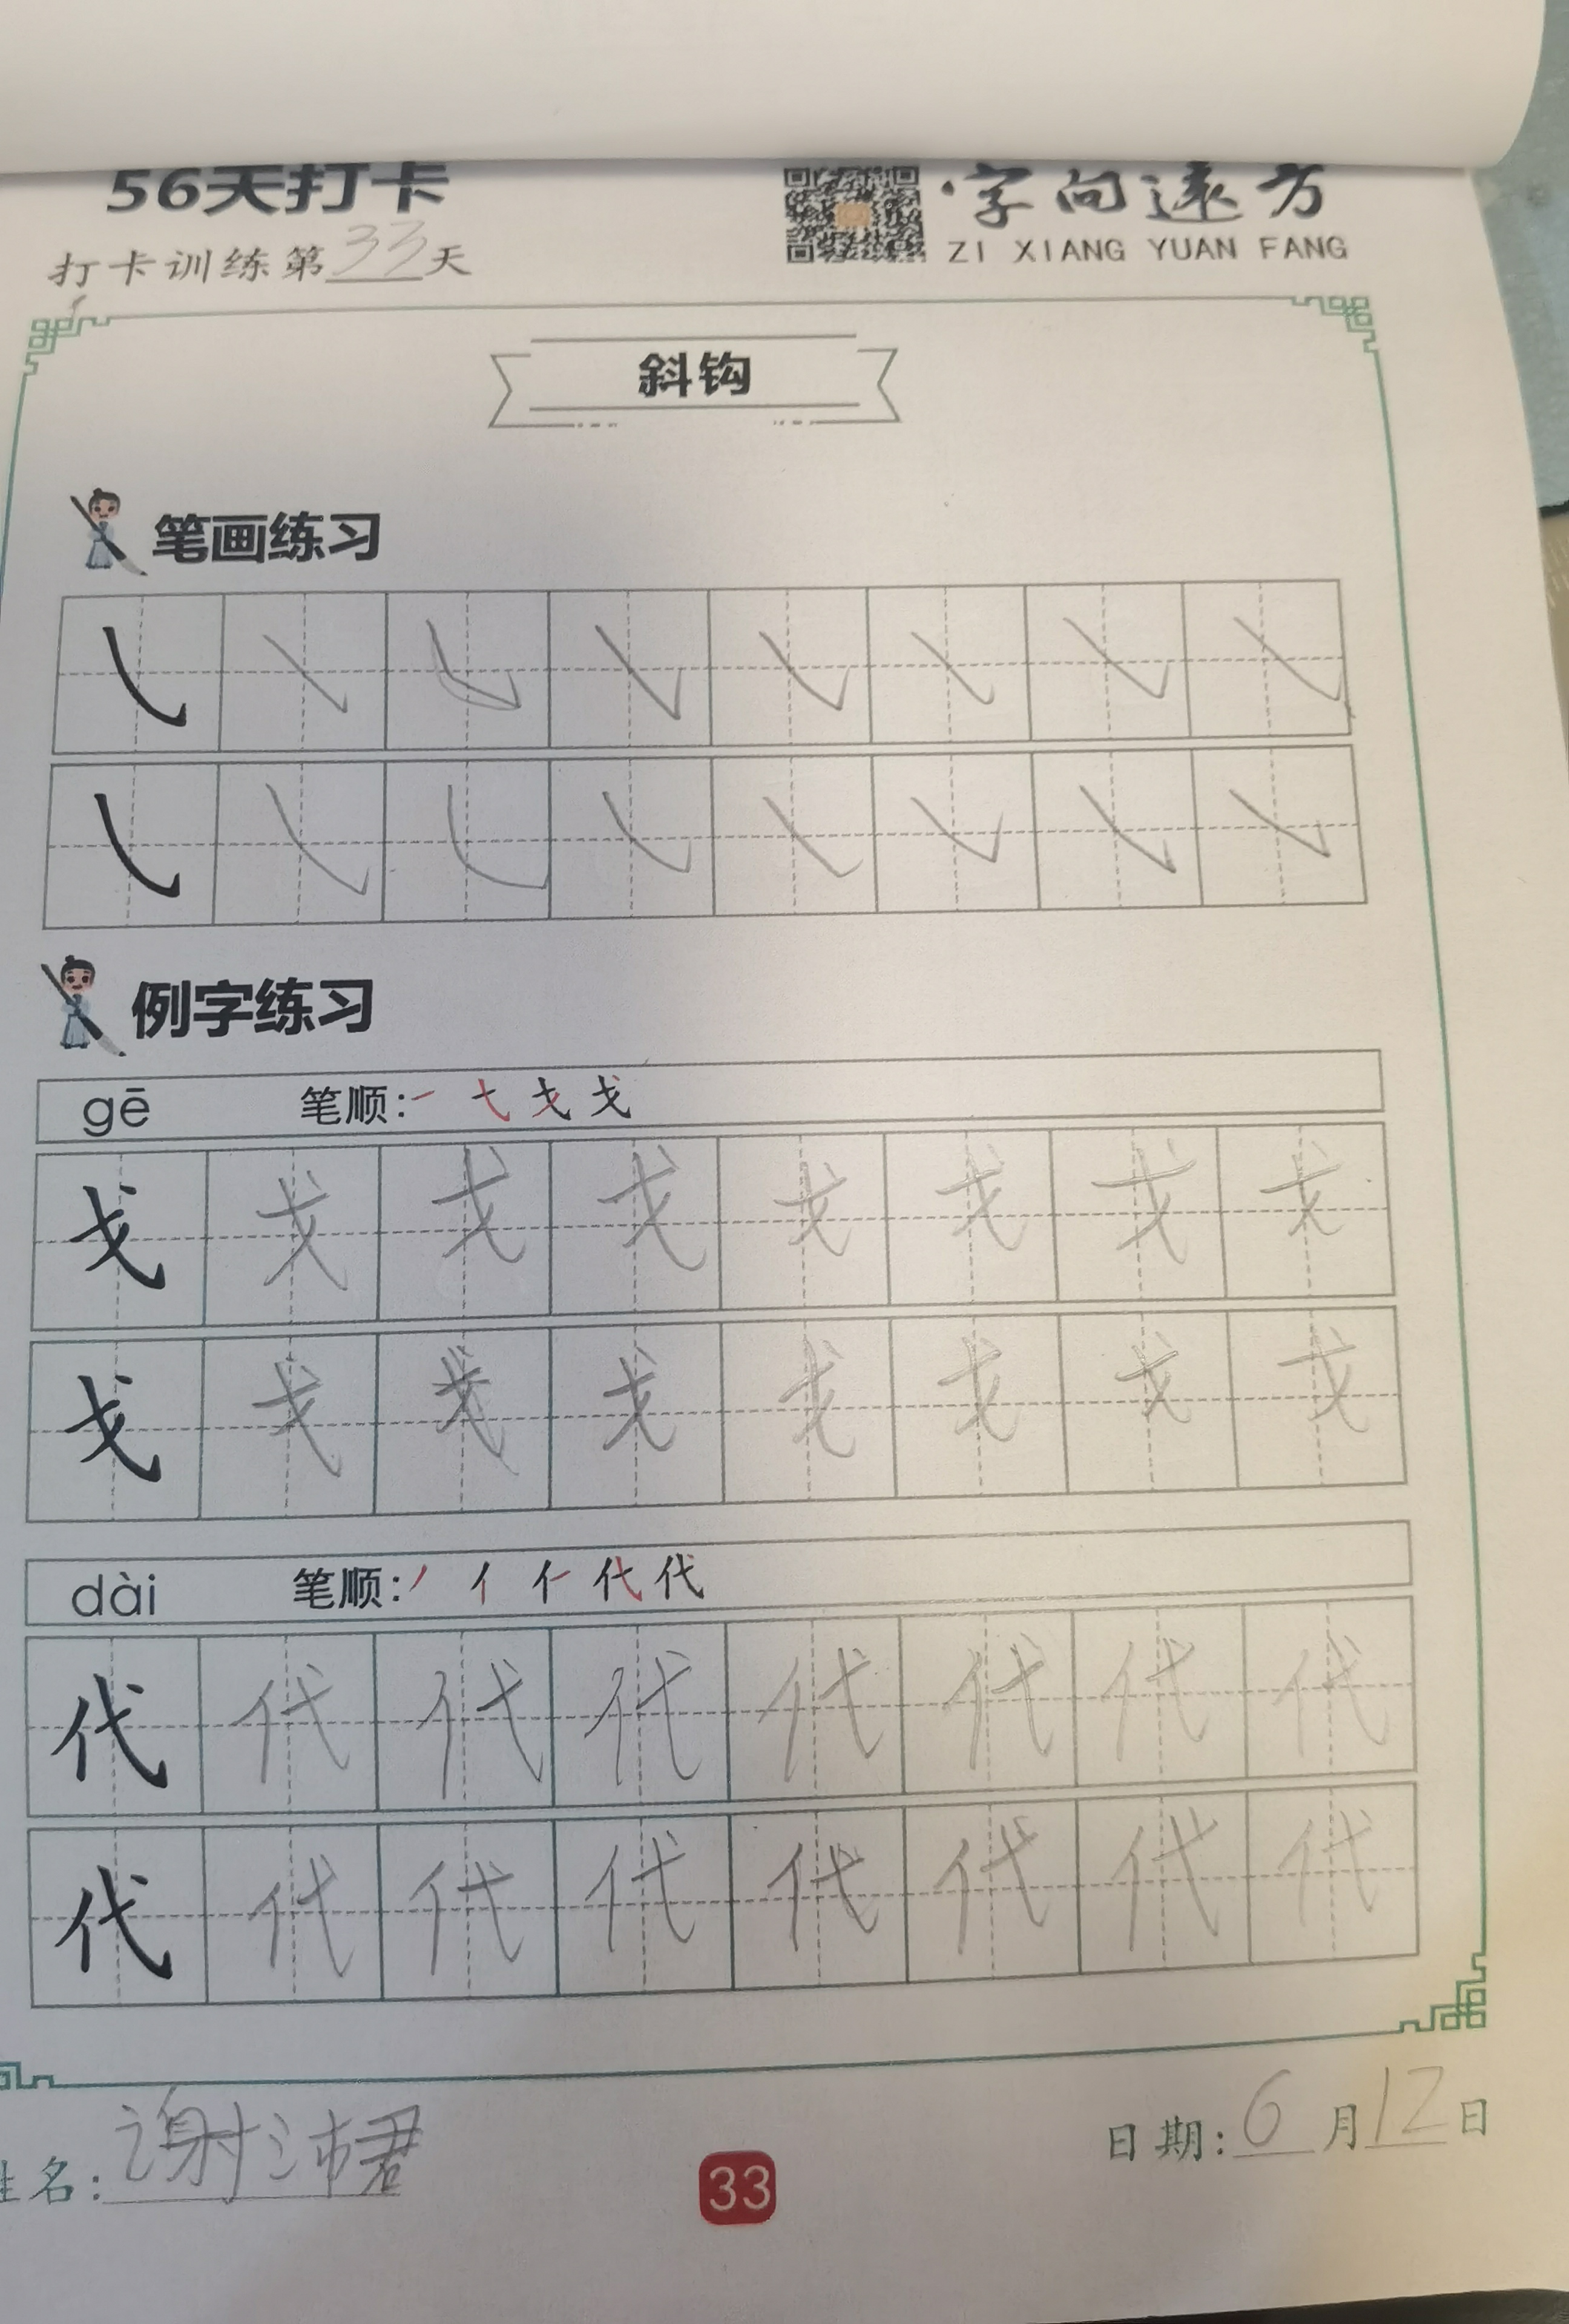 56天打卡
·字向远方
打卡训练第33天
ZI XIANG YUAN FANG
斜钩
笔画练习
例字练习
gē 笔顺: 一 弋 戈 戈
戈 戈 戈 戈 戈 戈 戈 戈
戈 戈 戈 戈 戈 戈 戈 戈
dài 笔顺: 丿 亻 仁 代 代
代 代 代 代 代 代 代 代
代 代 代 代 代 代 代 代
姓名: 谢沛君
日期: 6月12日
33